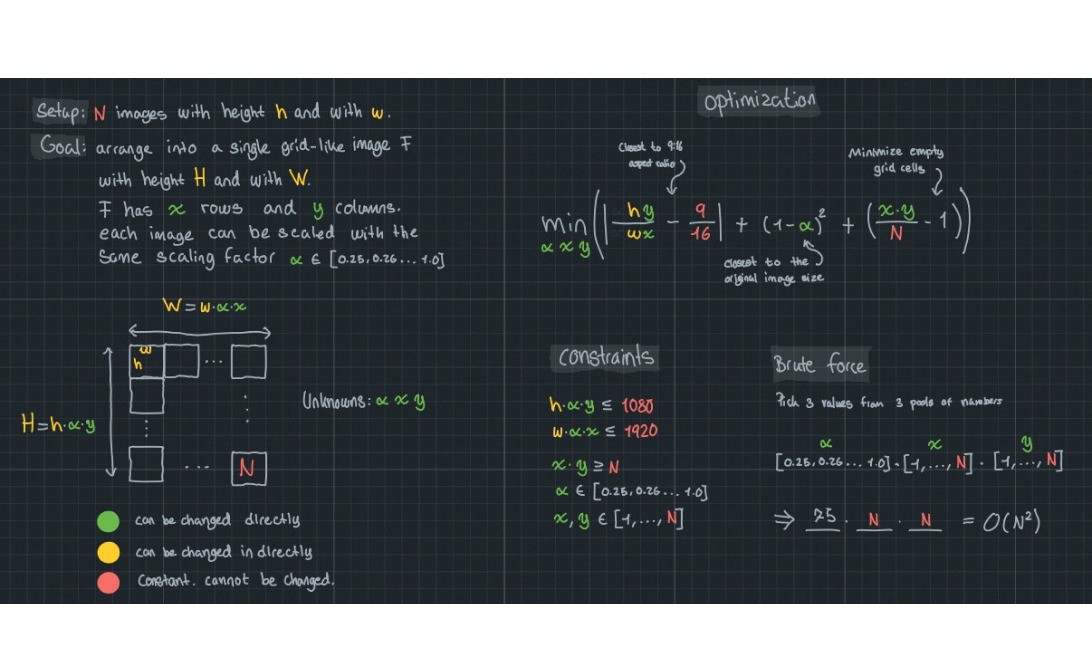 Setup: N images with height h and with w.
Goal: arrange into a single grid-like image F
with height H and with W.
F has x rows and y columns.
each image can be scaled with the
same scaling factor α ∈ [0.25, 0.26 ... 1.0]
W = w·α·x
w
h
...
H = h·α·y
...
N
Unknowns: α x y
can be changed directly
can be changed in directly
Constant. cannot be changed.
Optimization
Closest to 9:16
aspect ratio
Minimize empty
grid cells
min α x y ( | hy / wx - 9 / 16 | + (1-α)² + ( x·y / N - 1 ) )
closest to the
original image size
constraints
h·α·y ≤ 1080
w·α·x ≤ 1920
x·y ≥ N
α ∈ [0.25, 0.26 ... 1.0]
x, y ∈ [1, ..., N]
Brute force
Pick 3 values from 3 pools of numbers
α x y
[0.25, 0.26 ... 1.0] · [1, ..., N] · [1, ..., N]
⇒ 75 · N · N = O(N²)